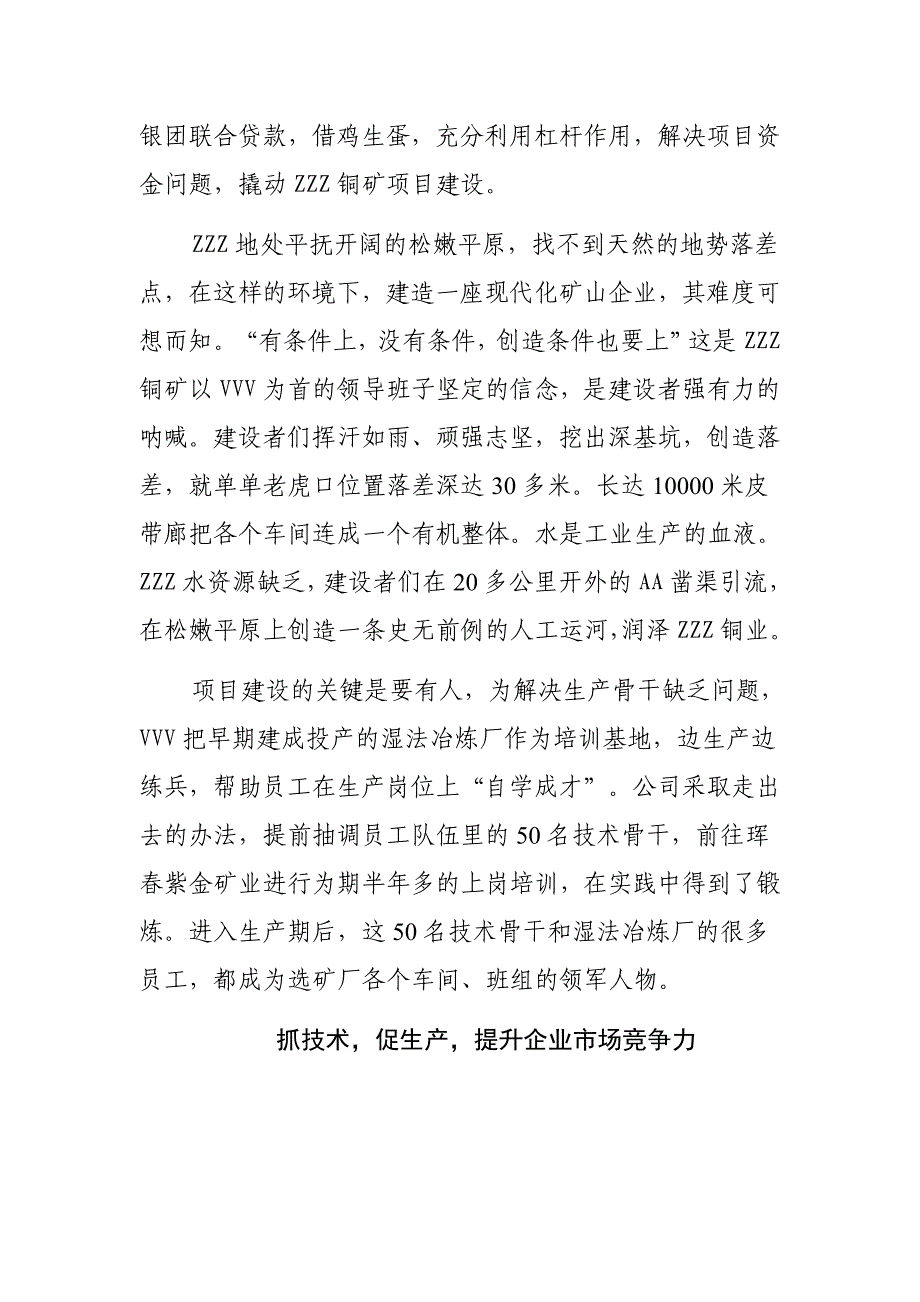 银团联合贷款，借鸡生蛋，充分利用杠杆作用，解决项目资
金问题，撬动 ZZZ 铜矿项目建设。
ZZZ 地处平抚开阔的松嫩平原，找不到天然的地势落差
点，在这样的环境下，建造一座现代化矿山企业，其难度可
想而知。“有条件上，没有条件，创造条件也要上”这是 ZZZ
铜矿以 VVV 为首的领导班子坚定的信念，是建设者强有力的
呐喊。建设者们挥汗如雨、顽强志坚，挖出深基坑，创造落
差，就单单老虎口位置落差深达 30 多米。长达 10000 米皮
带廊把各个车间连成一个有机整体。水是工业生产的血液。
ZZZ 水资源缺乏，建设者们在 20 多公里开外的 AA 凿渠引流，
在松嫩平原上创造一条史无前例的人工运河，润泽 ZZZ 铜业。
项目建设的关键是要有人，为解决生产骨干缺乏问题，
VVV 把早期建成投产的湿法冶炼厂作为培训基地，边生产边
练兵，帮助员工在生产岗位上“自学成才”。公司采取走出
去的办法，提前抽调员工队伍里的 50 名技术骨干，前往珲
春紫金矿业进行为期半年多的上岗培训，在实践中得到了锻
炼。进入生产期后，这 50 名技术骨干和湿法冶炼厂的很多
员工，都成为选矿厂各个车间、班组的领军人物。
抓技术，促生产，提升企业市场竞争力